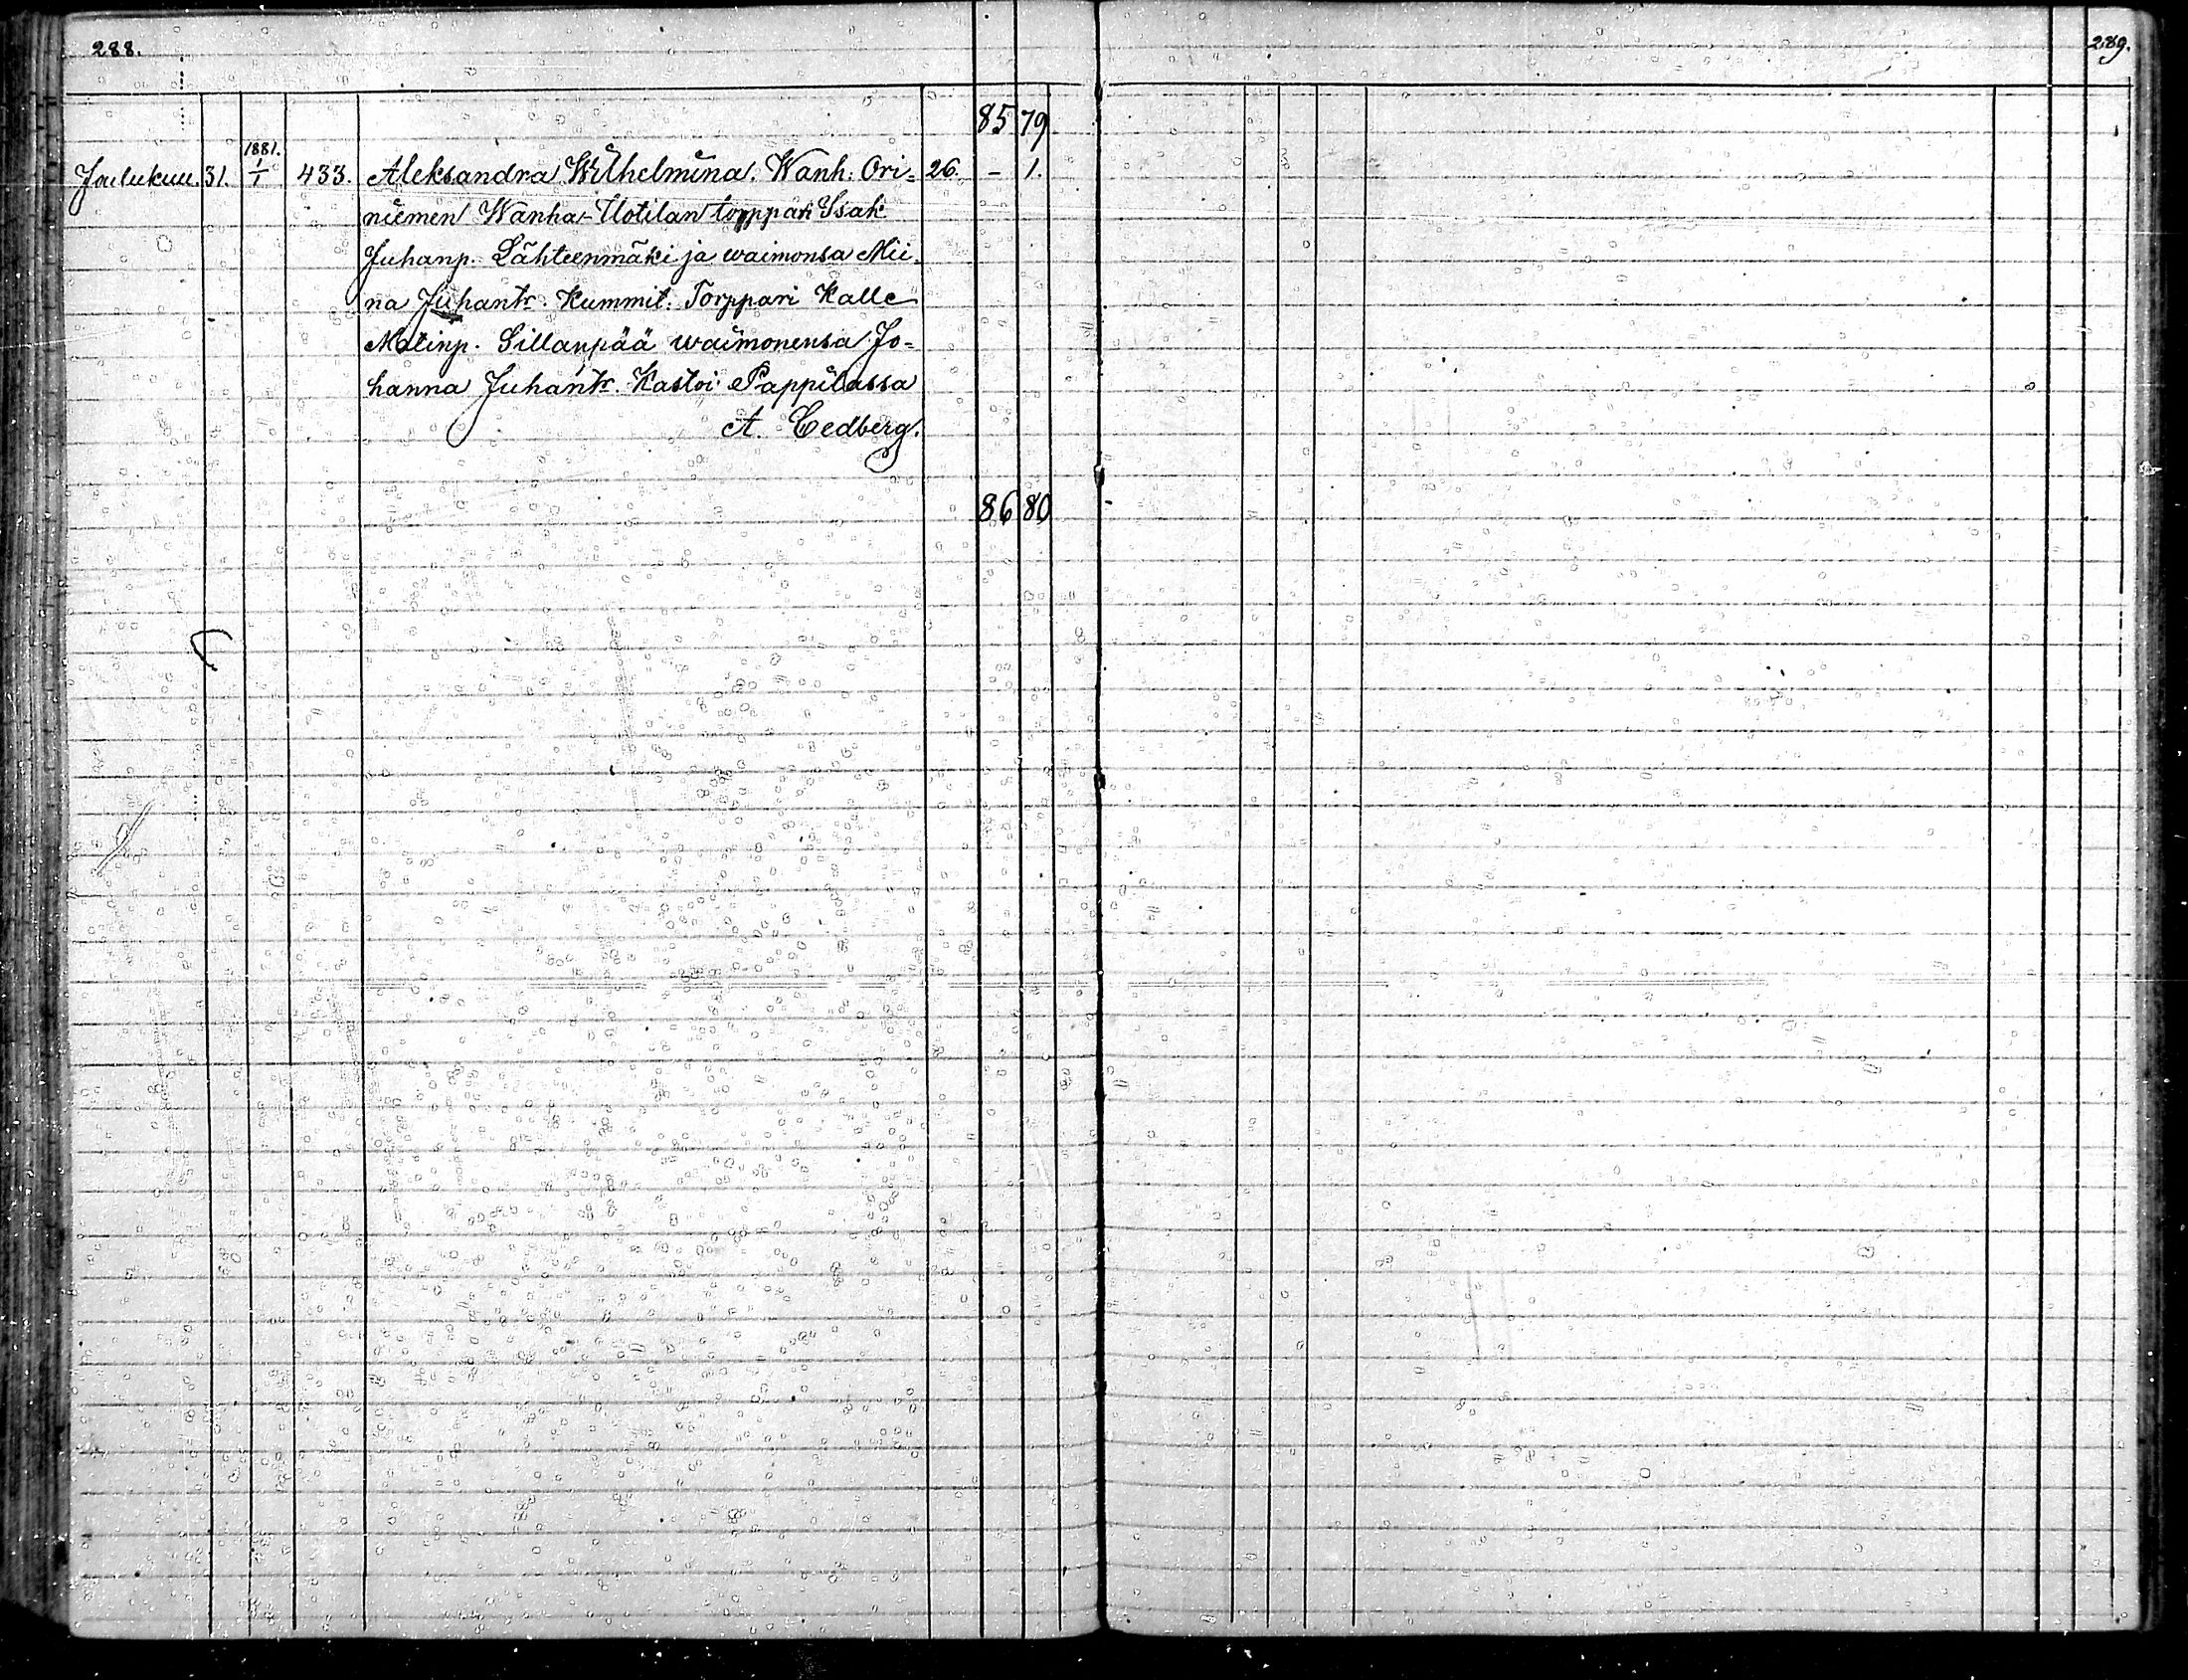 288.
289.
85 79
1881.
Joulukuu. 31. 1/1 433. Aleksandra Wilhelmina. Wanh: Ori= 26. – 1.
niemen Wanha-Uotilan torppari Isak
Juhanp. Lähteenmäki ja waimonsa Mii-
na Juhantr. Kummit: Torppari Kalle
Matinp. Sillanpää waimonensa Jo=
hanna Juhantr. Kastoi Pappilassa
A. Cedberg.
86 80